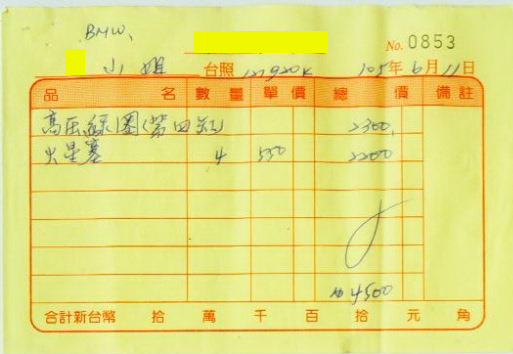 BMW,
No. 0853
小姐 台照 127920K 105年6月11日
品名 數量 單價 總價 備註
高压線圈(第四缸) 2300
火星塞 4 550 2200
$4500
合計新台幣 拾 萬 千 百 拾 元 角